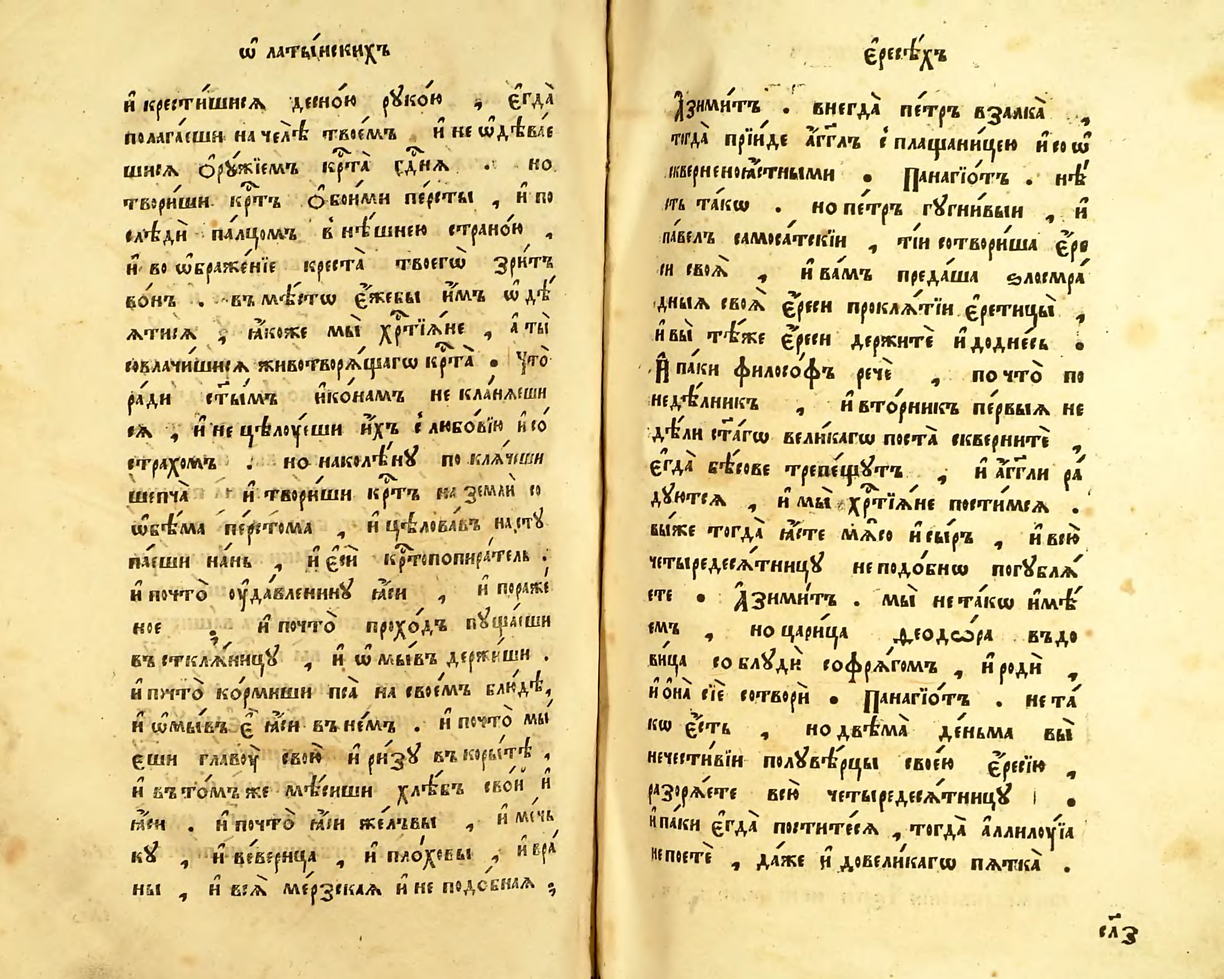 ѿ латы́нскихъ
и҆ крести́шисѧ десно́ю рꙋко́ю , є҆гда̀
полага́еши на челѣ̀ твое́мъ и҆ не ѡ҆дѣвае
шисѧ ѻ҆рꙋ́жїемъ кр҇та̀ гдⷭ҇нѧ . но
твори́ши кр҇тъ ѻ҆бои́ми пе́рсты , и҆ по
слѣдѝ па́лцомъ внѣ́шнею страно́ю ,
и҆ во ѡ҆браже́нїе креста̀ твоегѡ̀ зри́тъ
во́нъ . въ мѣ́стѡ є҆́жебы и҆́мъ ѡ҆дѣ
ѧтисѧ ; ꙗ҆́коже мы̀ хр҇тїѧ́не , а҆ ты̀
совлачи́шисѧ животворѧ́щагѡ кр҇та̀ . Что̀
ра́ди ст҃ы́мъ и҆ко́намъ не кла́нѧеши
сѧ , и҆ не цѣлꙋ́еши и҆́хъ с̾ любо́вїю и҆ со
стра́хомъ . но наколѣ́нꙋ поклѧ́чеши
шепча̀ и҆ твори́ши кр҇тъ на землѝ со
ѡ҆бѣ́ма перстома , и҆ цѣлова́въ насту
па́еши на́нь , и҆ є҆сѝ кр҇топопира́тель .
и҆ почто̀ ᲂу҆да́вленинꙋ ꙗ҆сѝ , и҆ пораже́
ное ; и҆ почто̀ прохо́дъ пꙋща́еши
въ стклѧ́ницꙋ , и҆ ѡ҆мы́въ держи́ши .
и҆ пчто̀ ко́рмиши пса̀ на свое́мъ блю́дѣ,
и҆ ѡ҆мы́въ є҆̀ ꙗ҆сѝ въ не́мъ . и҆ почто̀ мы́
еши главᲂу̀ свою̀ и҆ ри́зꙋ въ коры́тѣ ,
и҆ въ то́мъ же мѣ́сиши хлѣ́бъ сво́й и҆
ꙗ҆сѝ . и҆ почто̀ ꙗ҆сѝ же́лъвы , и҆ мечь
кꙋ , и҆ ве́верица , и҆ пло́ховы , и҆ вра́
ны , и҆ всѧ̀ ме́рзскаѧ и҆ не подо́бнаѧ ;
є҆ресѣ́хъ
А҆зими́тъ . внегда̀ пе́тръ взалка̀ ,
тогда̀ прїи́де а҆́гг҃лъ с̾ плащани́цею и҆ со ѡ
скверненоꙗ҆́стными . Панагїо́тъ . нѣ́
сть та́кѡ . но пе́тръ гꙋгни́выи , и҆
па́велъ самоса́тскїи , ті́и сотвори́ша є҆́ре
си своѧ̀ , и҆ ва́мъ преда́ша ѕлосмра́
дныѧ своѧ̀ є҆́реси проклѧ́тїи є҆ретицы̀ ,
и҆ вы̀ тѣ́же є҆́реси держитѐ и҆ додне́сь .
И҆ па́ки филосо́фъ речѐ , по что̀ по
недѣ́лникъ , и҆ вто́рникъ пе́рвыѧ не
дѣ́ли ст҃а́гѡ вели́кагѡ поста̀ сквернитѐ ,
є҆гда̀ бѣ́сове трепе́щꙋтъ , и҆ а҆́гг҃ли ра́
дꙋютсѧ , и҆ мы̀ хр҇тїѧ́не пости́мсѧ .
вы́же тогда̀ ꙗ҆́сте мѧ́со и҆ сы́ръ , и҆ всю̀
четыредесѧ́тницꙋ неподо́бнѡ погꙋблѧ́
ете . А҆зими́тъ . мы̀ не та́кѡ и҆мѣ́
емъ , но цари́ца Ѳеодѡ́ра въ до
ви́ца соблꙋдѝ со фрѧ́гомъ , и҆ родѝ ,
и҆ ѻ҆на̀ сїѐ сотворѝ . Панагїо́тъ . не та́
кѡ є҆́сть , но двѣма̀ де́ньма вы̀
нечести́вїи полꙋвѣ́рцы свое́ю є҆́ресїю ,
разорѧ́ете всю̀ четыредесѧ́тницꙋ .
и҆ па́ки є҆гда̀ пости́тесѧ , тогда̀ а҆ллилꙋ́їа
не поетѐ , да́же и҆ до вели́кагѡ пѧтка̀ .
сл҃з